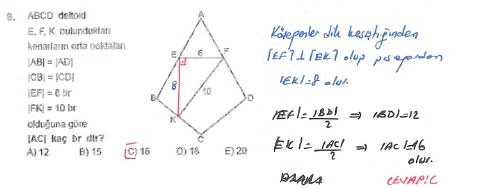 9. ABCD deltoid
E, F, K bulundukları
kenarların orta noktaları
|AB| = |AD|
|CB| = |CD|
|EF| = 6 br
|FK| = 10 br
olduğuna göre
|AC| kaç br dir?
A) 12 B) 15 C) 16 D) 18 E) 20
A
E 6 F
8 10
B D
K
C
Köşegenler dik kesiştiğinden
[EF] ⊥ [EK] olup pisagordan
|EK|=8 olur.
|EF| = |BD|/2 ⇒ |BD|=12
|EK| = |AC|/2 ⇒ |AC|=16
olur.
CEVAP: C